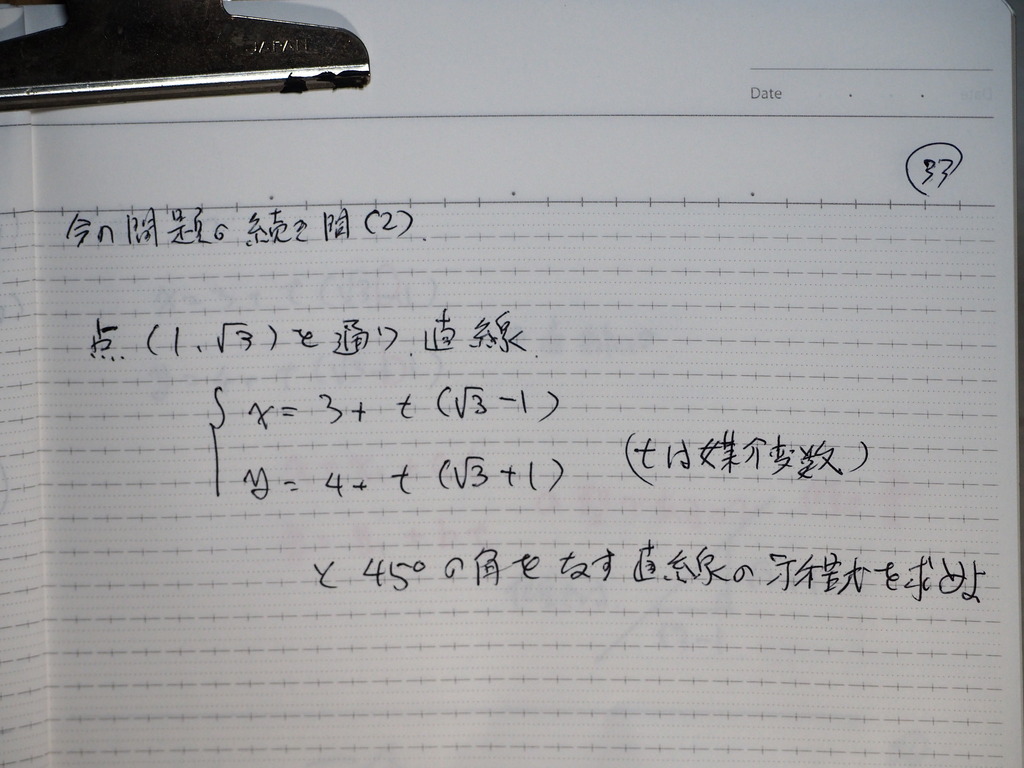 JAPAN
Date
33
今の問題の続き問(2).
点(1、√3)を通り、直線
x = 3 + t(√3-1)
y = 4 + t(√3+1) (tは媒介変数)
と45°の角をなす直線の方程式を求めよ